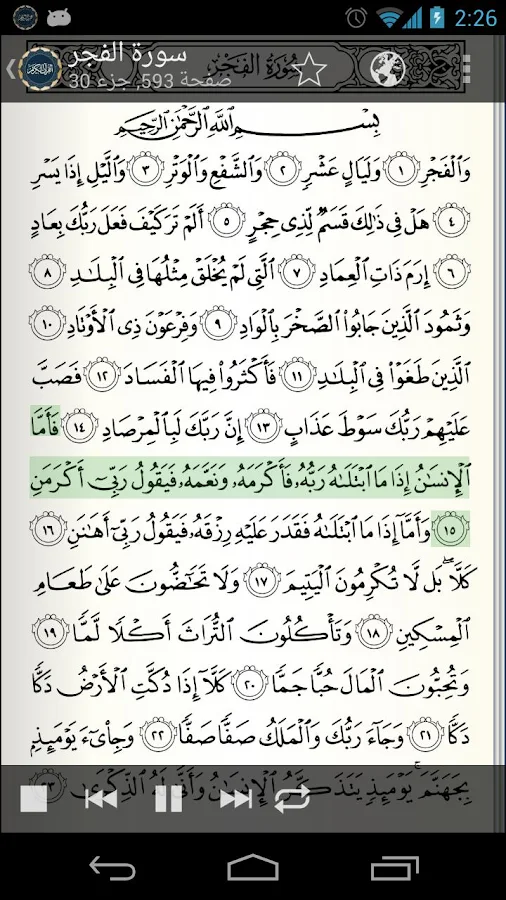 2:26
سورة الفجر
صفحة 593, جزء 30
سُورَةُ الفَجْرِ
بِسْمِ اللَّهِ الرَّحْمَٰنِ الرَّحِيمِ
وَالْفَجْرِ ١ وَلَيَالٍ عَشْرٍ ٢ وَالشَّفْعِ وَالْوَتْرِ ٣ وَاللَّيْلِ إِذَا يَسْرِ
٤ هَلْ فِي ذَٰلِكَ قَسَمٌ لِّذِي حِجْرٍ ٥ أَلَمْ تَرَ كَيْفَ فَعَلَ رَبُّكَ بِعَادٍ
٦ إِرَمَ ذَاتِ الْعِمَادِ ٧ الَّتِي لَمْ يُخْلَقْ مِثْلُهَا فِي الْبِلَـٰدِ ٨
وَثَمُودَ الَّذِينَ جَابُوا الصَّخْرَ بِالْوَادِ ٩ وَفِرْعَوْنَ ذِي الْأَوْتَادِ ١٠
الَّذِينَ طَغَوْا فِي الْبِلَـٰدِ ١١ فَأَكْثَرُوا فِيهَا الْفَسَادَ ١٢ فَصَبَّ
عَلَيْهِمْ رَبُّكَ سَوْطَ عَذَابٍ ١٣ إِنَّ رَبَّكَ لَبِالْمِرْصَادِ ١٤ فَأَمَّا
الْإِنسَـٰنُ إِذَا مَا ابْتَلَـٰهُ رَبُّهُۥ فَأَكْرَمَهُۥ وَنَعَّمَهُۥ فَيَقُولُ رَبِّيٓ أَكْرَمَنِ
١٥ وَأَمَّآ إِذَا مَا ابْتَلَـٰهُ فَقَدَرَ عَلَيْهِ رِزْقَهُۥ فَيَقُولُ رَبِّيٓ أَهَـٰنَنِ ١٦
كَلَّا ۖ بَل لَّا تُكْرِمُونَ الْيَتِيمَ ١٧ وَلَا تَحَـٰٓضُّونَ عَلَىٰ طَعَامِ
الْمِسْكِينِ ١٨ وَتَأْكُلُونَ التُّرَاثَ أَكْلًا لَّمًّا ١٩
وَتُحِبُّونَ الْمَالَ حُبًّا جَمًّا ٢٠ كَلَّآ إِذَا دُكَّتِ الْأَرْضُ دَكًّا
دَكًّا ٢١ وَجَآءَ رَبُّكَ وَالْمَلَكُ صَفًّا صَفًّا ٢٢ وَجِا۟يٓءَ يَوْمَئِذٍۭ
بِجَهَنَّمَ ۚ يَوْمَئِذٍ يَتَذَكَّرُ الْإِنسَـٰنُ وَأَنَّىٰ لَهُ الذِّكْرَىٰ ٢٣